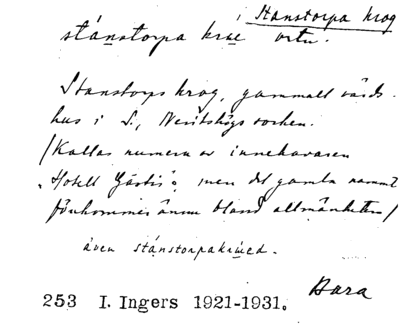 i Stanstorpa krog
stánstorpa krue ortn.
Stanstorps krog, gammalt värds-
hus i S., Nevitshögs socken.
/Kallas numera av innehavaren
"Hotell Gästis"; men det gamla namnet
förekommer ännu bland allmänheten/
även stánstorpakrúed.
Bara
253 I. Ingers 1921-1931.